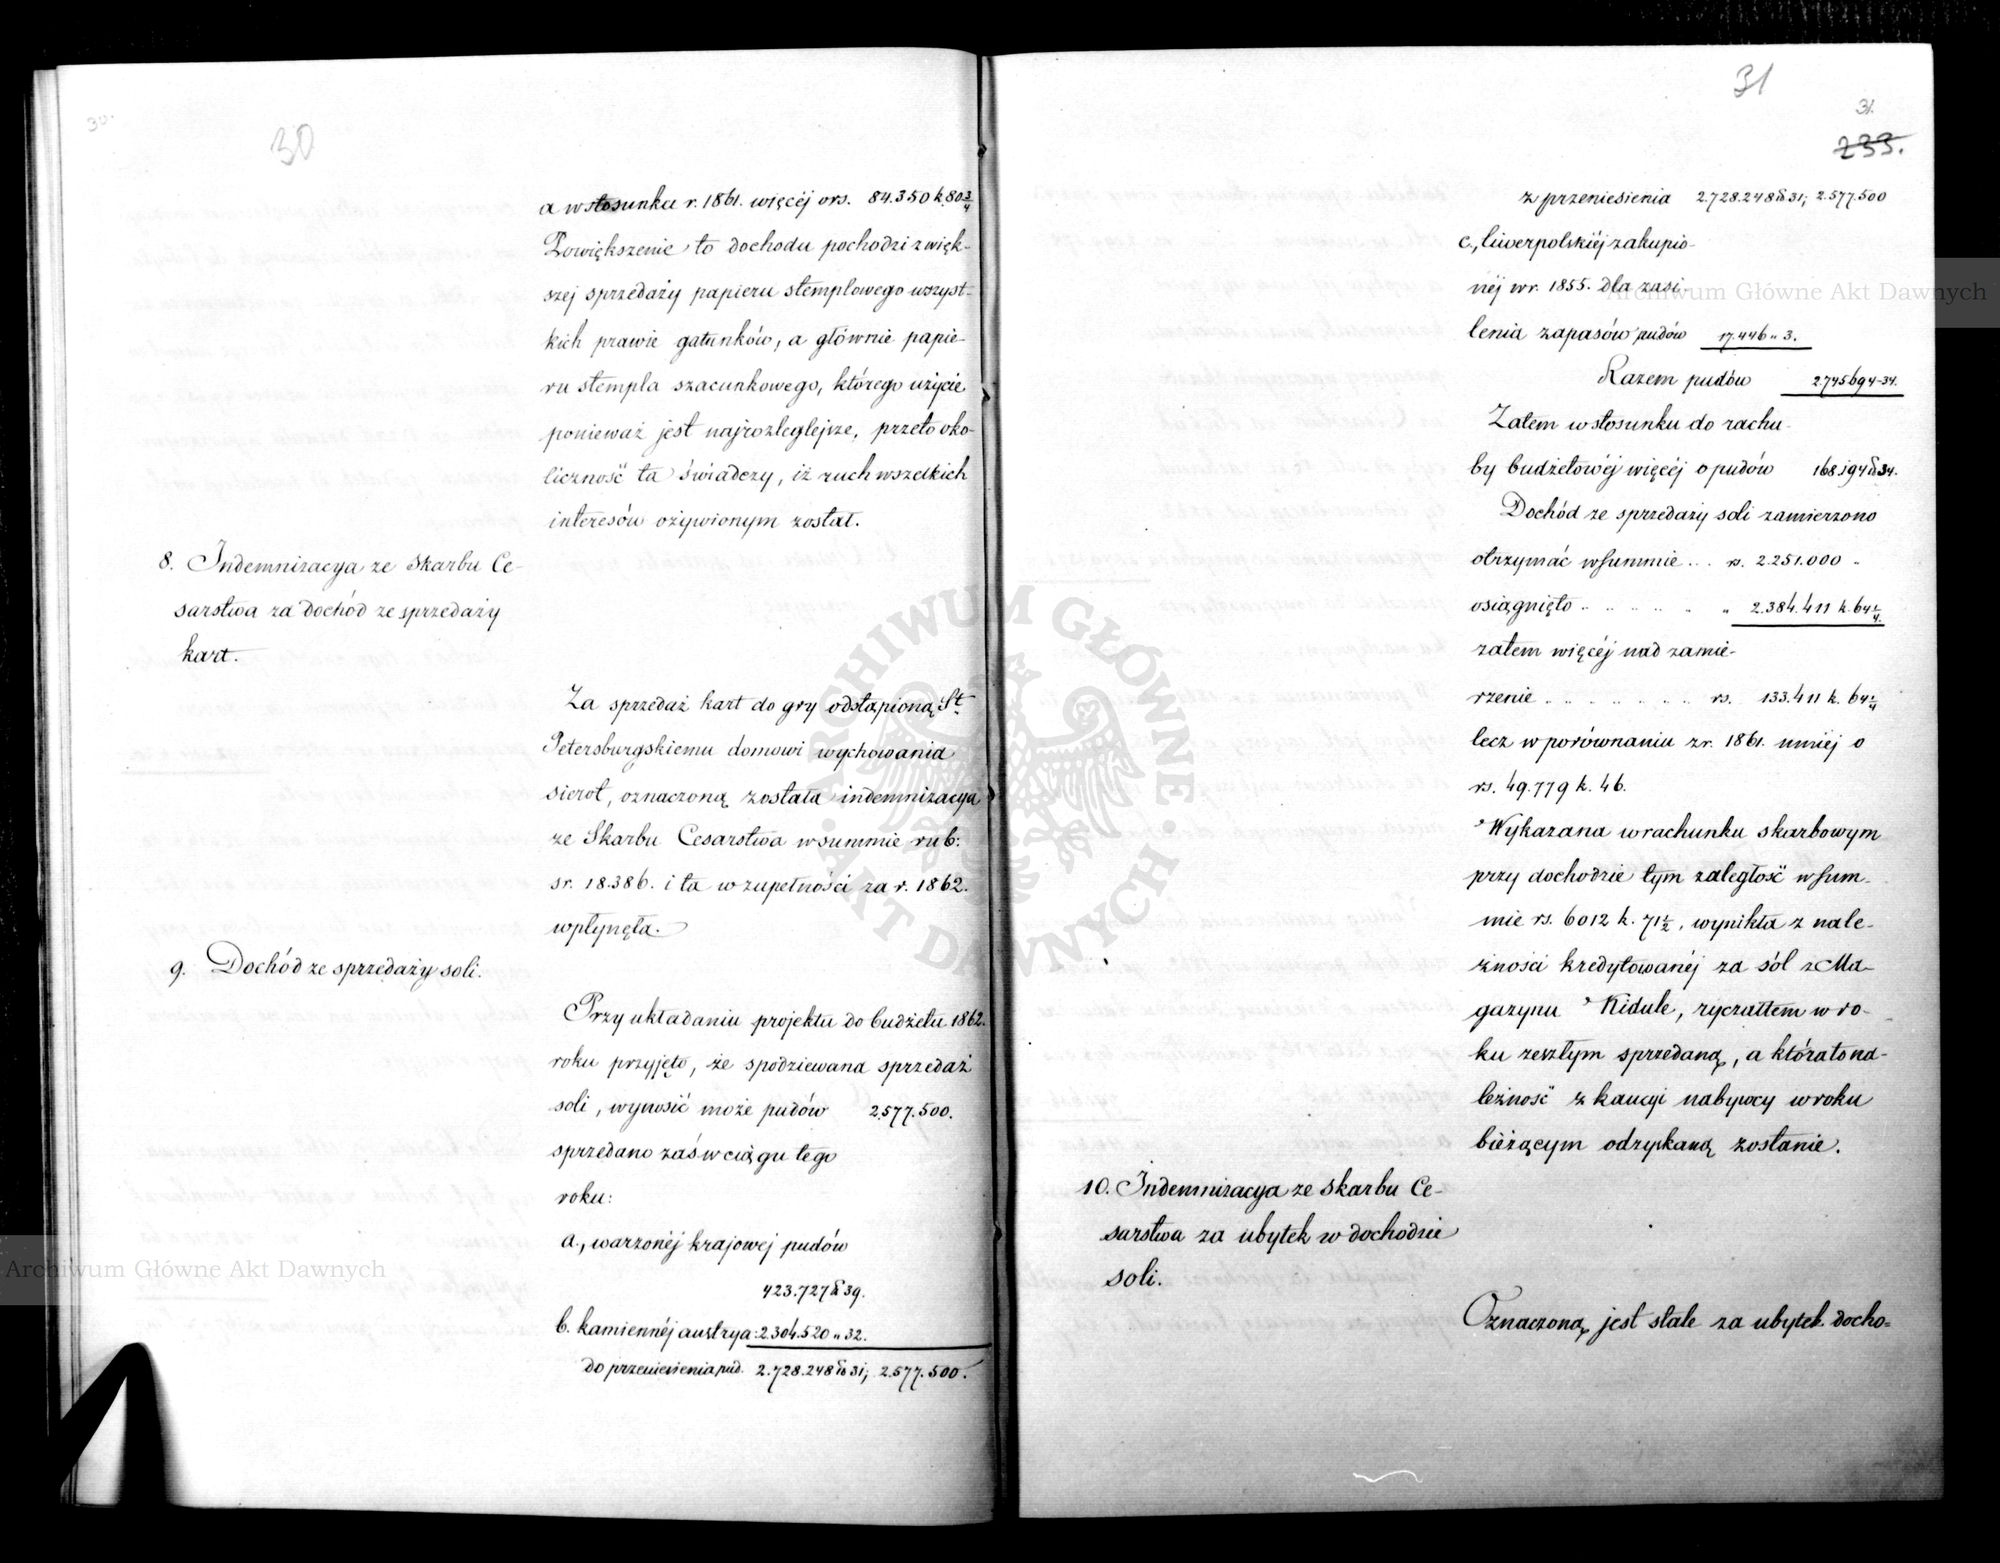 30.
30
a w stosunku r. 1861. więcéj o rs. 84.350 k. 80 3/4
Powiększenie to dochodu pochodzi z więk-
szej sprzedaży papieru stemplowego wszyst-
kich prawie gatunków, a głównie papie-
ru stempla szacunkowego, którego użycie
ponieważ jest najrozleglejsze, przeto oko-
liczność ta świadczy, iż ruch wszelkich
interesów ożywionym został.
8. Indemnizacya ze Skarbu Ce-
sarstwa za dochód ze sprzedaży
kart.
Za sprzedaż kart do gry odstąpioną St.
Petersburgskiemu domowi wychowania
sierot, oznaczoną została indemnizacya
ze Skarbu Cesarstwa w summie rub:
sr. 18.386. i ta w zupełności za r. 1862.
wpłynęła.
9. Dochód ze sprzedaży soli.
Przy układaniu projektu do budżetu 1862.
roku przyjęto, że spodziewana sprzedaż
soli, wynosić może pudów 2.577.500.
sprzedano zaś w ciągu tego
roku:
a., warzonéj krajowej pudów
423.727 ℔ 39.
b. kamiennéj austrya: 2.304.520 „ 32.
do przeniesienia pud. 2.728.248 ℔ 31; 2.577.500.
31
31.
233.
z przeniesienia 2.728.248 ℔ 31; 2.577.500
c., liwerpolskiéj zakupio-
néj w r. 1855. dla zasi-
lenia zapasów pudów 17.446 „ 3.
Razem pudów 2745694-34.
Zatem w stosunku do rachu-
by budżetowéj więcéj o pudów 168.194 ℔ 34.
Dochód ze sprzedaży soli zamierzono
otrzymać w summie . . . rs. 2.251.000 „
osiągnięto . . . . . . „ 2.384.411 k. 64 1/4.
zatem więcéj nad zamie-
rzenie . . . . . . . rs. 133.411 k. 64 1/4
lecz w porównaniu z r. 1861. mniéj o
rs. 49.779 k. 46.
Wykazana w rachunku skarbowym
przy dochodzie tym zaległość w sum-
mie rs. 6012 k. 71 1/2, wynikła z nale-
żności kredytowanéj za sól z Ma-
gazynu Kidule, ryczałtem w ro-
ku zeszłym sprzedaną, a którato na-
leżność z kaucyi nabywcy w roku
bieżącym odzyskaną zostanie.
10. Indemnizacya ze skarbu Ce-
sarstwa za ubytek w dochodzie
soli.
Oznaczoną jest stale za ubytek docho=
Archiwum Główne Akt Dawnych
Archiwum Główne Akt Dawnych
ARCHIWUM GŁÓWNE · AKT DAWNYCH ·